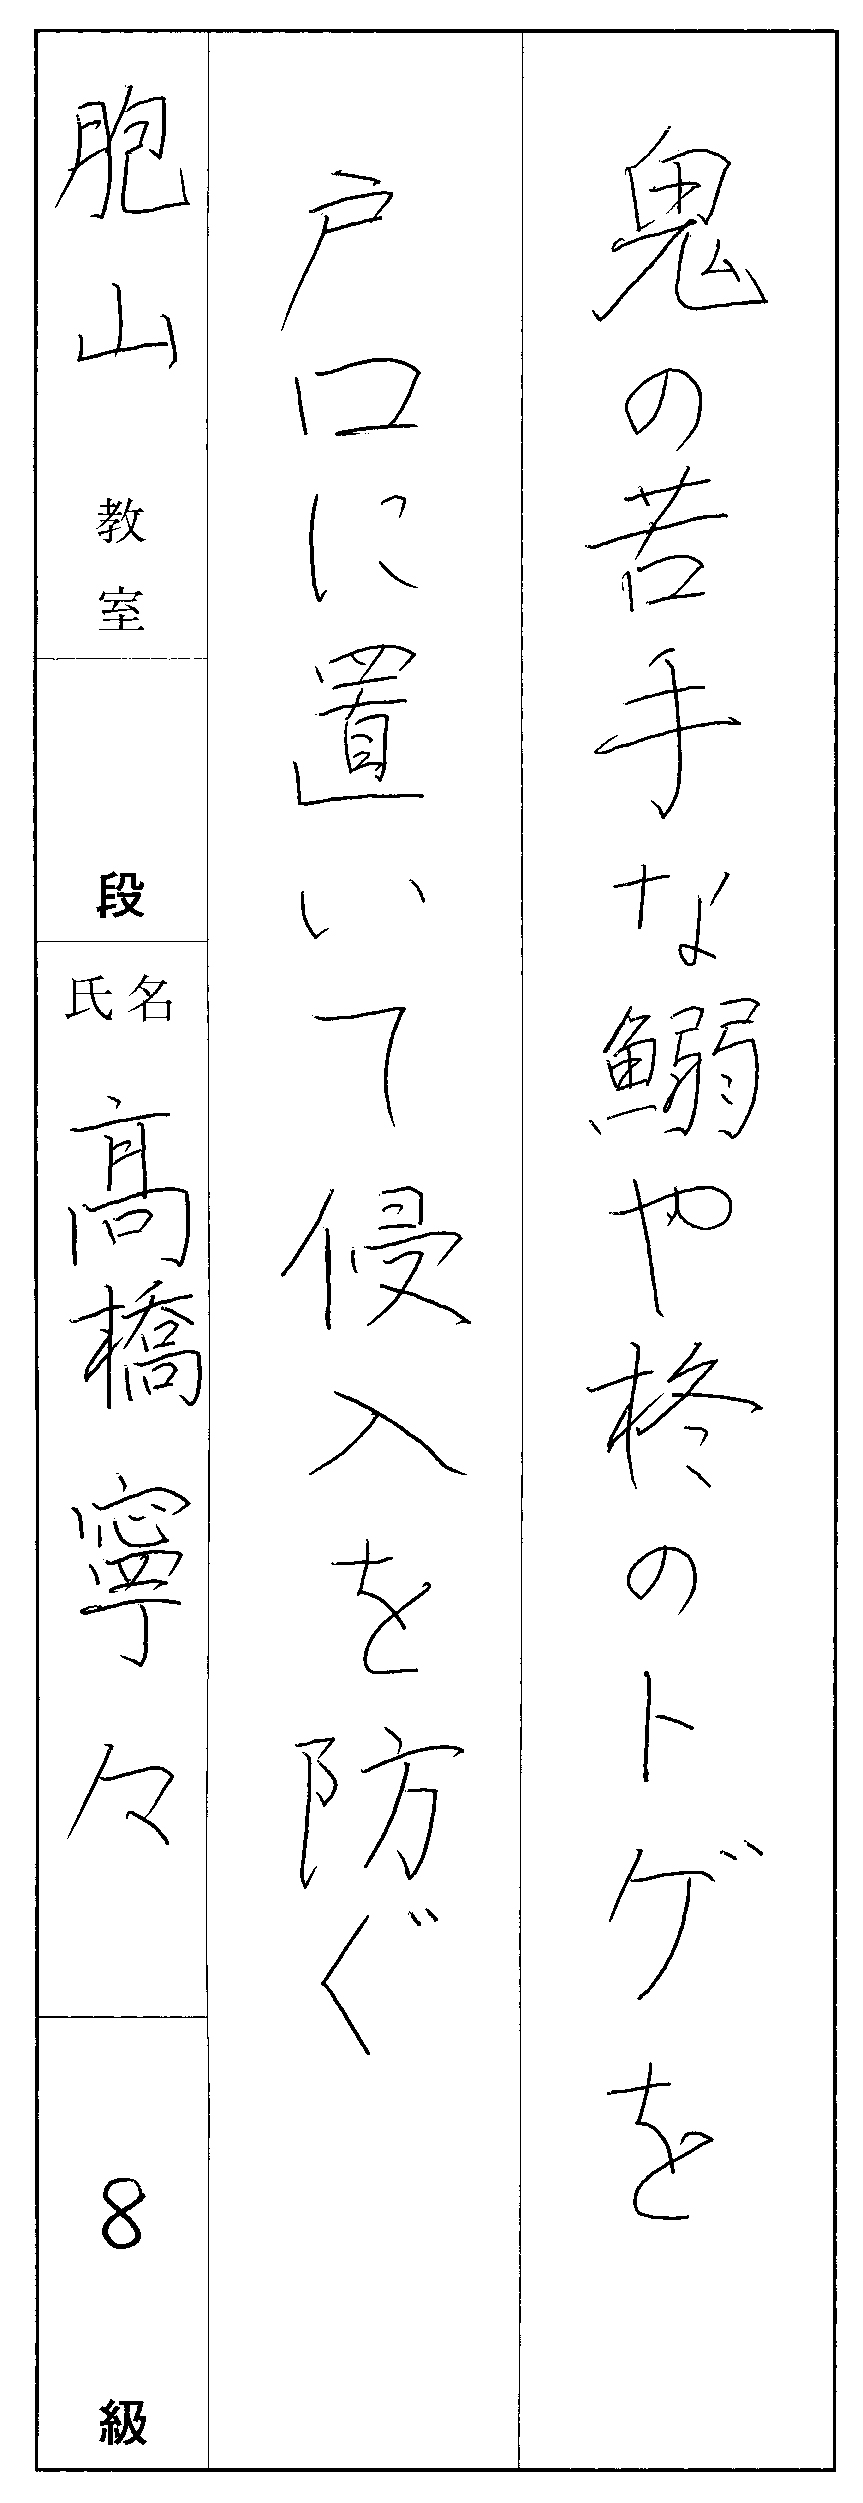 鬼の苦手な鰯や柊のトゲを
戸口に置いて侵入を防ぐ
胞山教室
段
氏名 髙橋寧々
8級